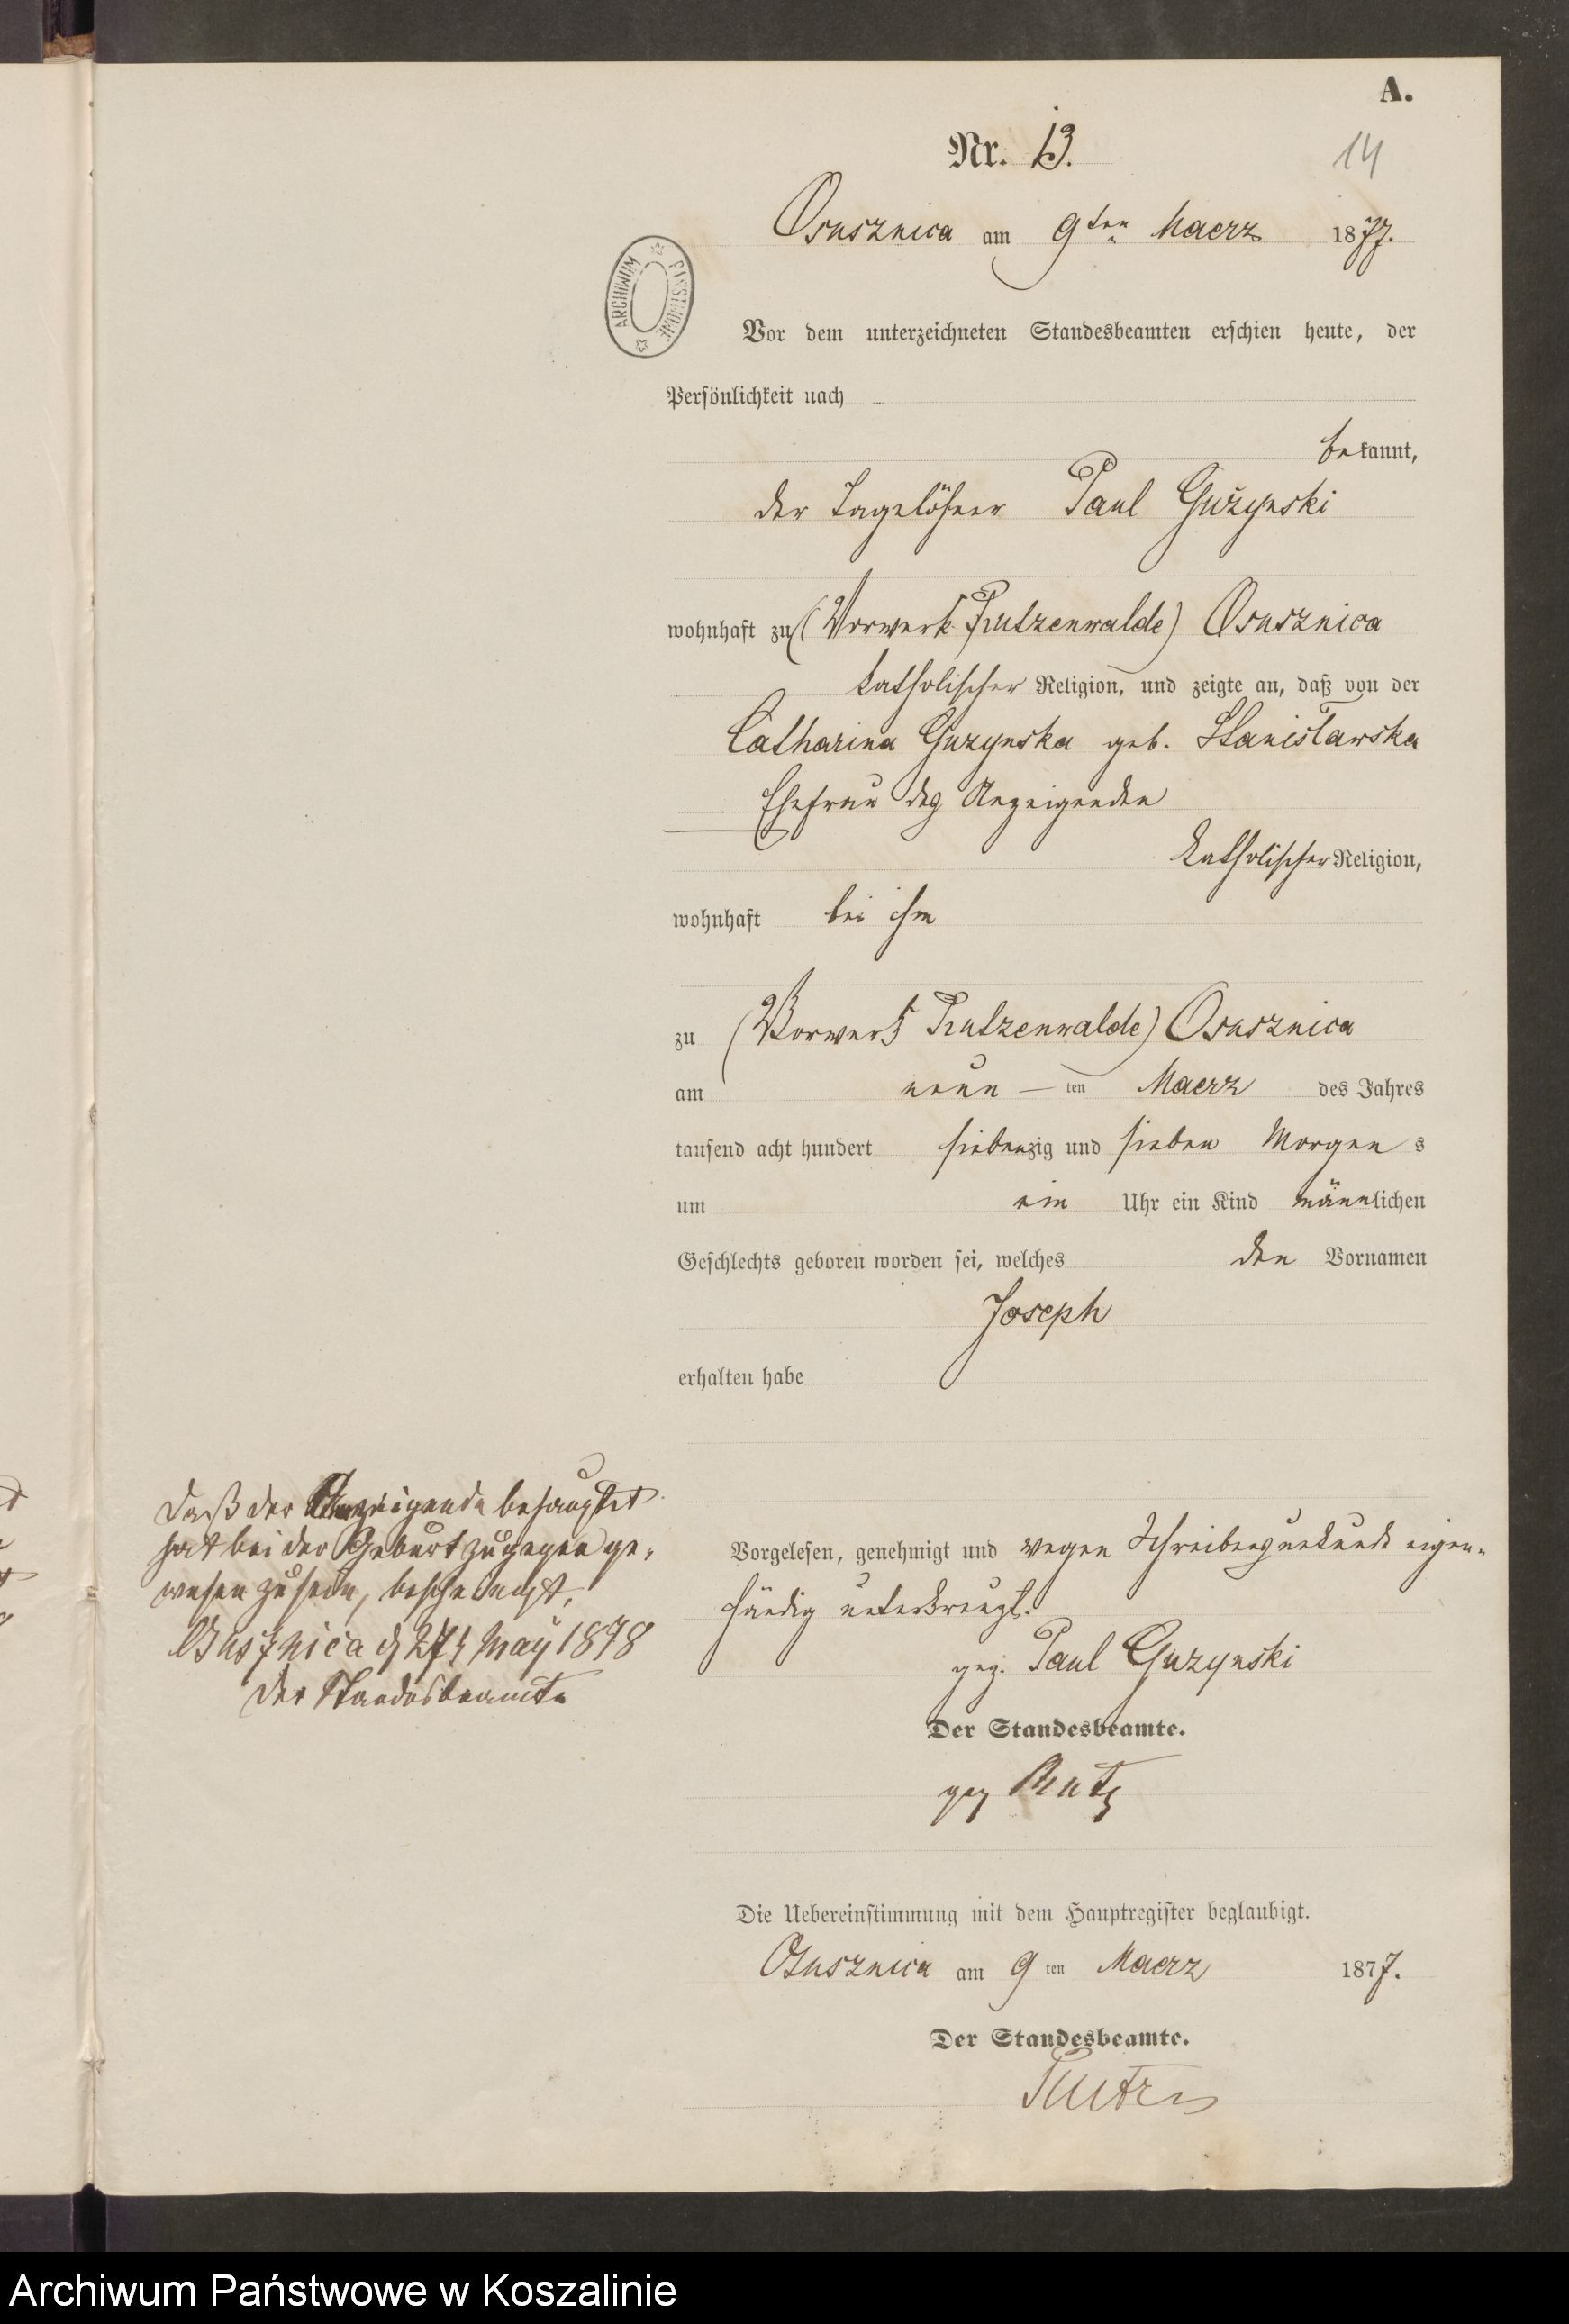 A.
Nr. 13.
14
Osusznica am 9ten Maerz 1877.
ARCHIWUM PAŃSTWOWE
Vor dem unterzeichneten Standesbeamten erschien heute, der
Persönlichkeit nach
bekannt,
der Tagelöhner Paul Gużynski
wohnhaft zu (Vorwerk Rutzenwalde) Osusznica
katholischer Religion, und zeigte an, daß von der
Catharina Guzynska geb. Stanisławska
Ehefrau des Anzeigenden
katholischer Religion,
wohnhaft bei ihm
zu (Vorwerk Rutzenwalde) Osusznica
am neun ten Maerz des Jahres
tausend acht hundert siebenzig und sieben Morgens
um ein Uhr ein Kind männlichen
Geschlechts geboren worden sei, welches den Vornamen
Joseph
erhalten habe
Daß der Anzeigende behauptet
hat bei der Geburt zugegen ge-
wesen zu sein, bescheinigt,
Osusznica d 27t May 1878
Der Standesbeamte
Vorgelesen, genehmigt und wegen Schreibensunkunde eigen-
händig unterkreuzt.
gez. Paul Guzynski
Der Standesbeamte.
gez Rutz
Die Uebereinstimmung mit dem Hauptregister beglaubigt.
Osusznica am 9ten Maerz 1877.
Der Standesbeamte.
Archiwum Państwowe w Koszalinie